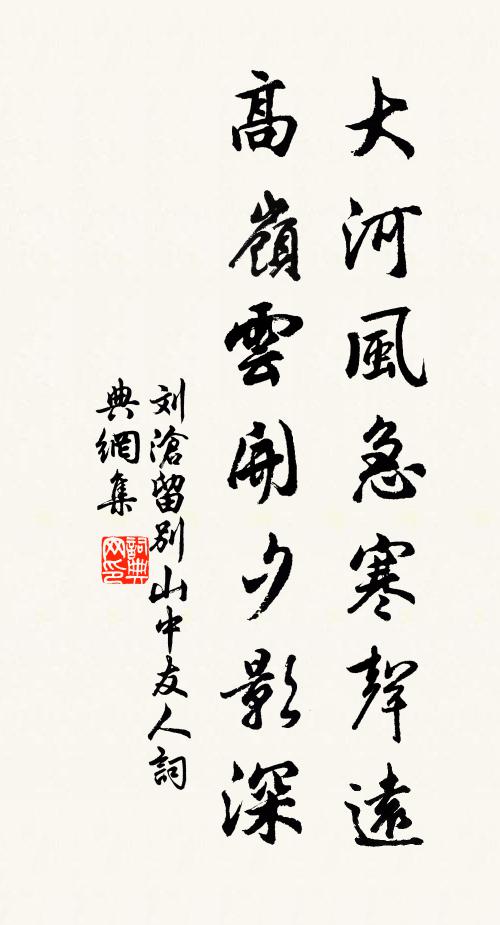 大河風急寒聲遠
高嶺雲開夕影深
刘滄留别山中友人詞
典網集
詞典
网印